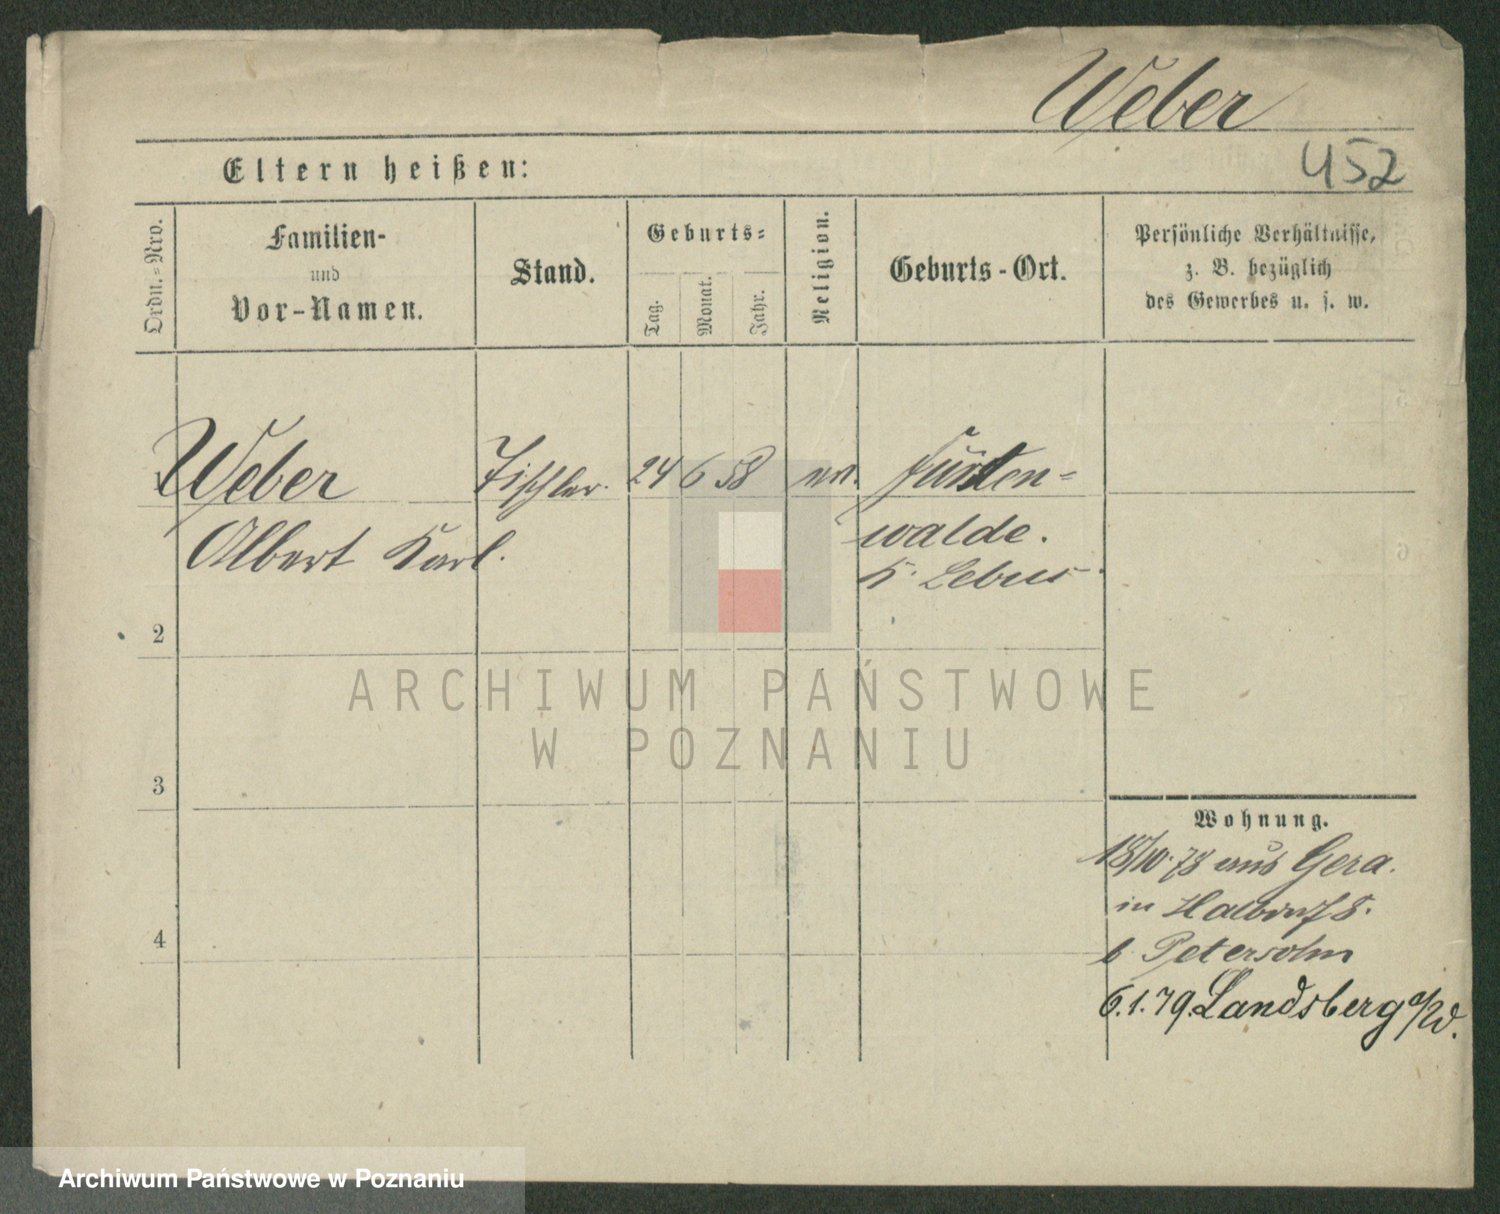 Weber
452
Eltern heißen:
Ordn.=Nro.
Familien-
und
Vor-Namen.
Stand.
Geburts=
Tag.
Monat.
Jahr.
Religion.
Geburts-Ort.
Persönliche Verhältnisse,
z. B. bezüglich
des Gewerbes u. s. w.
Weber Tischler. 24 6 58 ev. Fürsten=
Albert Karl. walde.
K. Lebus
2
3
4
Wohnung.
18/10.78 aus Gera.
in Halbdorf 8.
b
6.1.79. Landsberg a/W.
ARCHIWUM PAŃSTWOWE
W POZNANIU
Archiwum Państwowe w Poznaniu